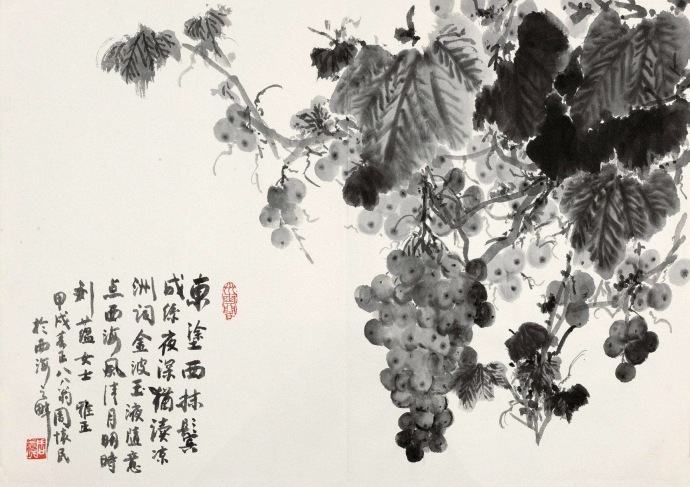 東塗西抹鬢
成絲夜深猶讀涼
洲詞金波玉液隨意
点西海風清月明時
蘊女士 雅正
甲戌春正八八翁周懷民
於西海之畔